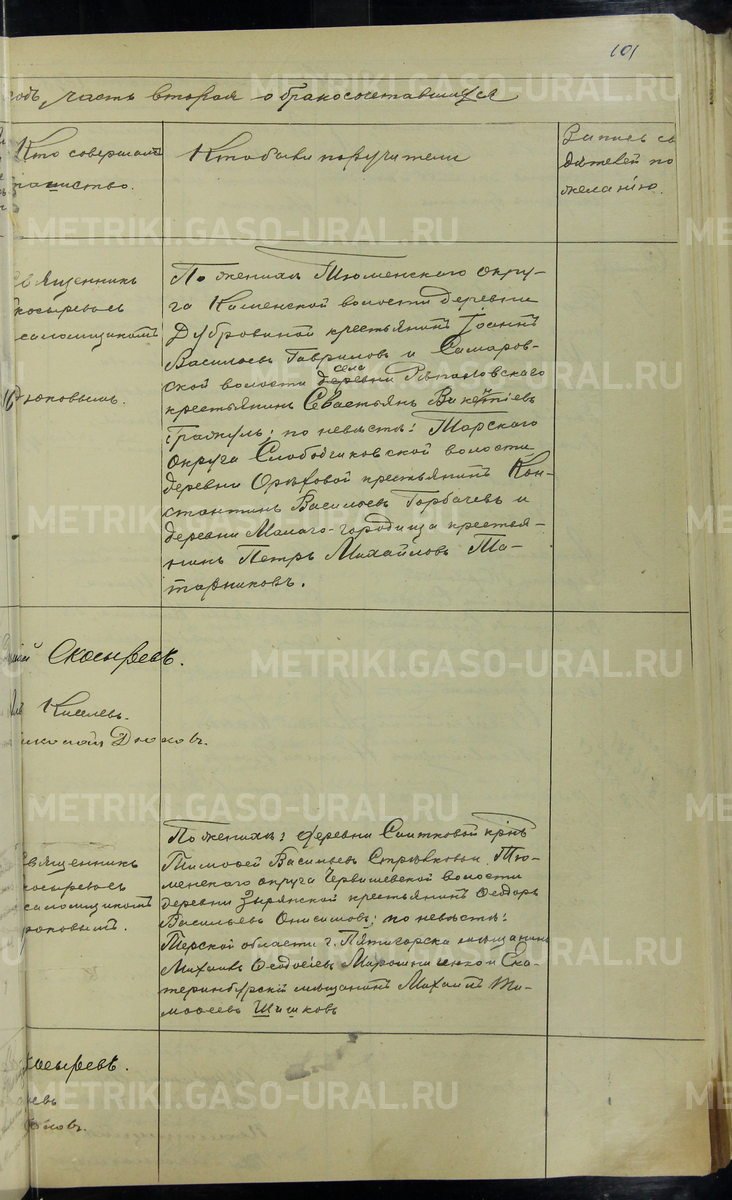 101
годъ часть вторая о бракосочетавшихся
Кто совершалъ
таинство.
Кто были поручители
Запись св
дѣтелей по
желанію.
Священникъ
Скосыревъ съ
псаломщикомъ
Дюковымъ.
По женихѣ Тюменскаго окру-
га Каменской волости деревни
Дубровиной крестьянинъ Іоаннъ
Васильевъ Гавриловъ и Самаров-
села
ской волости деревни Рѣполовскаго
крестьянинъ Севастьянъ Викентіевъ
по невѣстѣ: Тарскаго
округа Слободчиковской волости
деревни Орѣховой крестьянинъ Кон-
стантинъ Васильевъ Горбачевъ и
деревни Малаго-городища крестья-
нинъ Петръ Михайловъ Та-
тарниковъ.
Скосыревъ.
Киселевъ.
Дюковъ.
Священникъ
Скосыревъ съ
псаломщикомъ
Дюковымъ.
По женихѣ: деревни Саитковой крѣ
Тимофей Васильевъ Тю-
менскаго округа Червишевской волости
деревни Зырянской крестьянинъ Ѳеодоръ
Васильевъ Онисимовъ; по невѣстѣ:
Терской области г. Пятигорска мѣщанинъ
Михаилъ Ѳеодосіевъ Мирошниченко и Ека-
теринбургскій мѣщанинъ Михаилъ Ти-
моѳеевъ Шишковъ
Скосыревъ.
METRIKI.GASO-URAL.RU